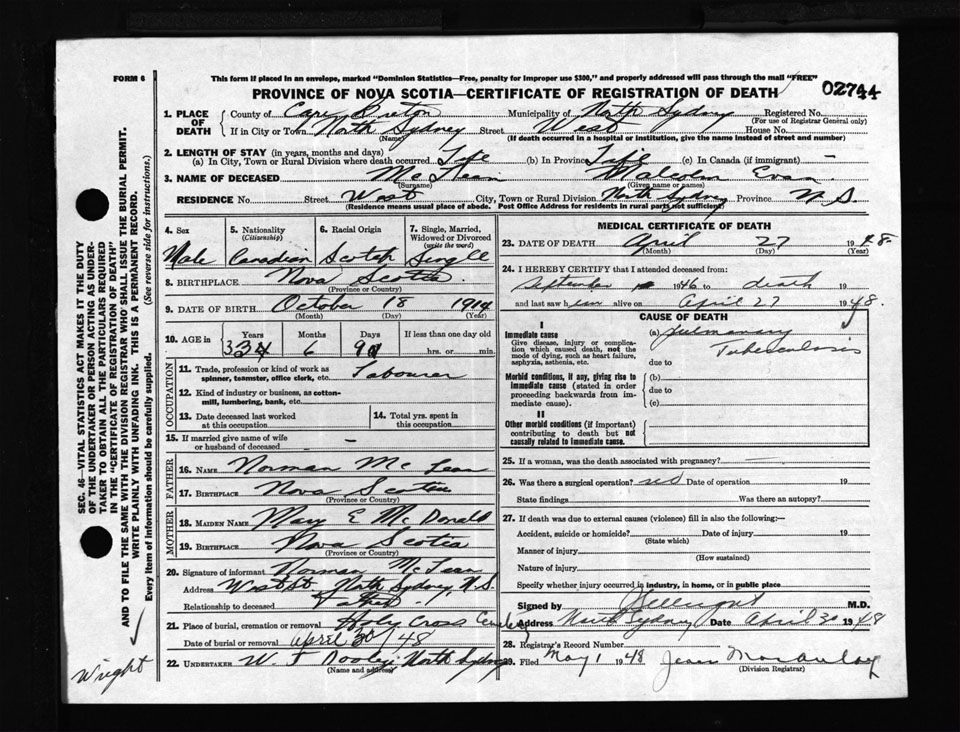 FORM 6
This form if placed in an envelope, marked "Dominion Statistics—Free, penalty for improper use $300," and properly addressed will pass through the mail "FREE"
PROVINCE OF NOVA SCOTIA—CERTIFICATE OF REGISTRATION OF DEATH
02744
1. PLACE OF DEATH
County of Cape Breton Municipality of North Sydney Registered No.
(For use of Registrar General only)
If in City or Town North Sydney Street West House No.
(Name) (If death occurred in a hospital or institution, give the name instead of street and number)
2. LENGTH OF STAY (in years, months and days)
(a) In City, Town or Rural Division where death occurred Life (b) In Province Life (c) In Canada (if immigrant) —
3. NAME OF DECEASED McLean Malcolm Evan
(Surname) (Given name or names)
RESIDENCE No. Street West City, Town or Rural Division North Sydney Province N.S.
(Residence means usual place of abode. Post Office Address for residents in rural parts not sufficient)
4. Sex 5. Nationality 6. Racial Origin 7. Single, Married,
(Citizenship) Widowed or Divorced
(write the word)
Male Canadian Scotch Single
8. BIRTHPLACE Nova Scotia
(Province or Country)
9. DATE OF BIRTH October 18 1914
(Month) (Day) (Year)
10. AGE in Years Months Days If less than one day old
33 6 9 hrs. or min.
OCCUPATION
11. Trade, profession or kind of work as
spinner, teamster, office clerk, etc. Labourer
12. Kind of industry or business, as cotton-
mill, lumbering, bank, etc.
13. Date deceased last worked 14. Total yrs. spent in
at this occupation this occupation
15. If married give name of wife
or husband of deceased —
FATHER
16. NAME Norman McLean
17. BIRTHPLACE Nova Scotia
(Province or Country)
MOTHER
18. MAIDEN NAME Mary E McDonald
19. BIRTHPLACE Nova Scotia
(Province or Country)
20. Signature of informant Norman McLean
Address West st North Sydney, N.S.
Relationship to deceased Father
21. Place of burial, cremation or removal Holy Cross Cemetery
Date of burial or removal April 30/48
22. UNDERTAKER W. J Dooley North Sydney
(Name and address)
MEDICAL CERTIFICATE OF DEATH
23. DATE OF DEATH April 27 1948
(Month) (Day) (Year)
24. I HEREBY CERTIFY that I attended deceased from:
September 1946 to death
and last saw him alive on April 27 1948.
CAUSE OF DEATH
I
Immediate cause (a) Pulmonary
Give disease, injury or complica-
tion which caused death, not the Tuberculosis
mode of dying, such as heart failure,
asphyxia, asthenia, etc. due to
Morbid conditions, if any, giving rise to (b)
immediate cause (stated in order due to
proceeding backwards from im-
mediate cause). (c)
II
Other morbid conditions (if important)
contributing to death but not
causally related to immediate cause.
25. If a woman, was the death associated with pregnancy? —
26. Was there a surgical operation? no Date of operation 19
State findings Was there an autopsy?
27. If death was due to external causes (violence) fill in also the following:—
Accident, suicide or homicide? Date of injury 19
(State which)
Manner of injury
(How sustained)
Nature of injury
Specify whether injury occurred in industry, in home, or in public place
Signed by M.D.
Address North Sydney Date April 30 1948
28. Registrar's Record Number
29. Filed May 1 1948 Jean
(Division Registrar)
SEC. 46—VITAL STATISTICS ACT MAKES IT THE DUTY
OF THE UNDERTAKER OR PERSON ACTING AS UNDER-
TAKER TO OBTAIN ALL THE PARTICULARS REQUIRED
IN THE "CERTIFICATE OF REGISTRATION OF DEATH"
AND TO FILE THE SAME WITH THE DIVISION REGISTRAR WHO SHALL ISSUE THE BURIAL PERMIT.
WRITE PLAINLY WITH UNFADING INK. THIS IS A PERMANENT RECORD.
Every item of information should be carefully supplied. (See reverse side for instructions.)
Wright